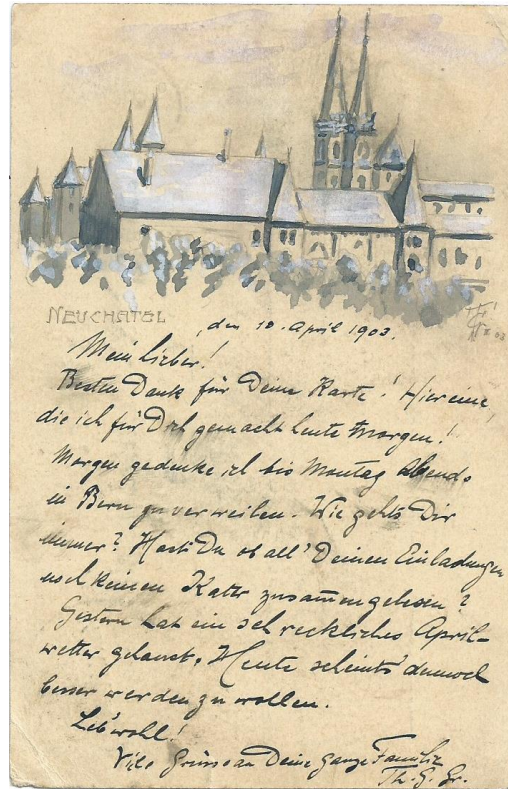 NEUCHATEL
den 10. April 1903.
Mein lieber!
Besten Dank für Deine Karte! Hier eine,
die ich für Dich gemacht heute Morgen!
Morgen gedenke ich bis Montag Abends
in Bern zu verweilen. Wie gehts Dir
immer? Hast Du ob all' Deinen Einladungen
noch keinen Kater zusammengelesen?
Gestern hat ein schreckliches April-
wetter gehaust. Heute scheint's dennoch
besser werden zu wollen.
Leb'wohl!
Viele Grüsse an Deine ganze Familie
Th. G. Gr.